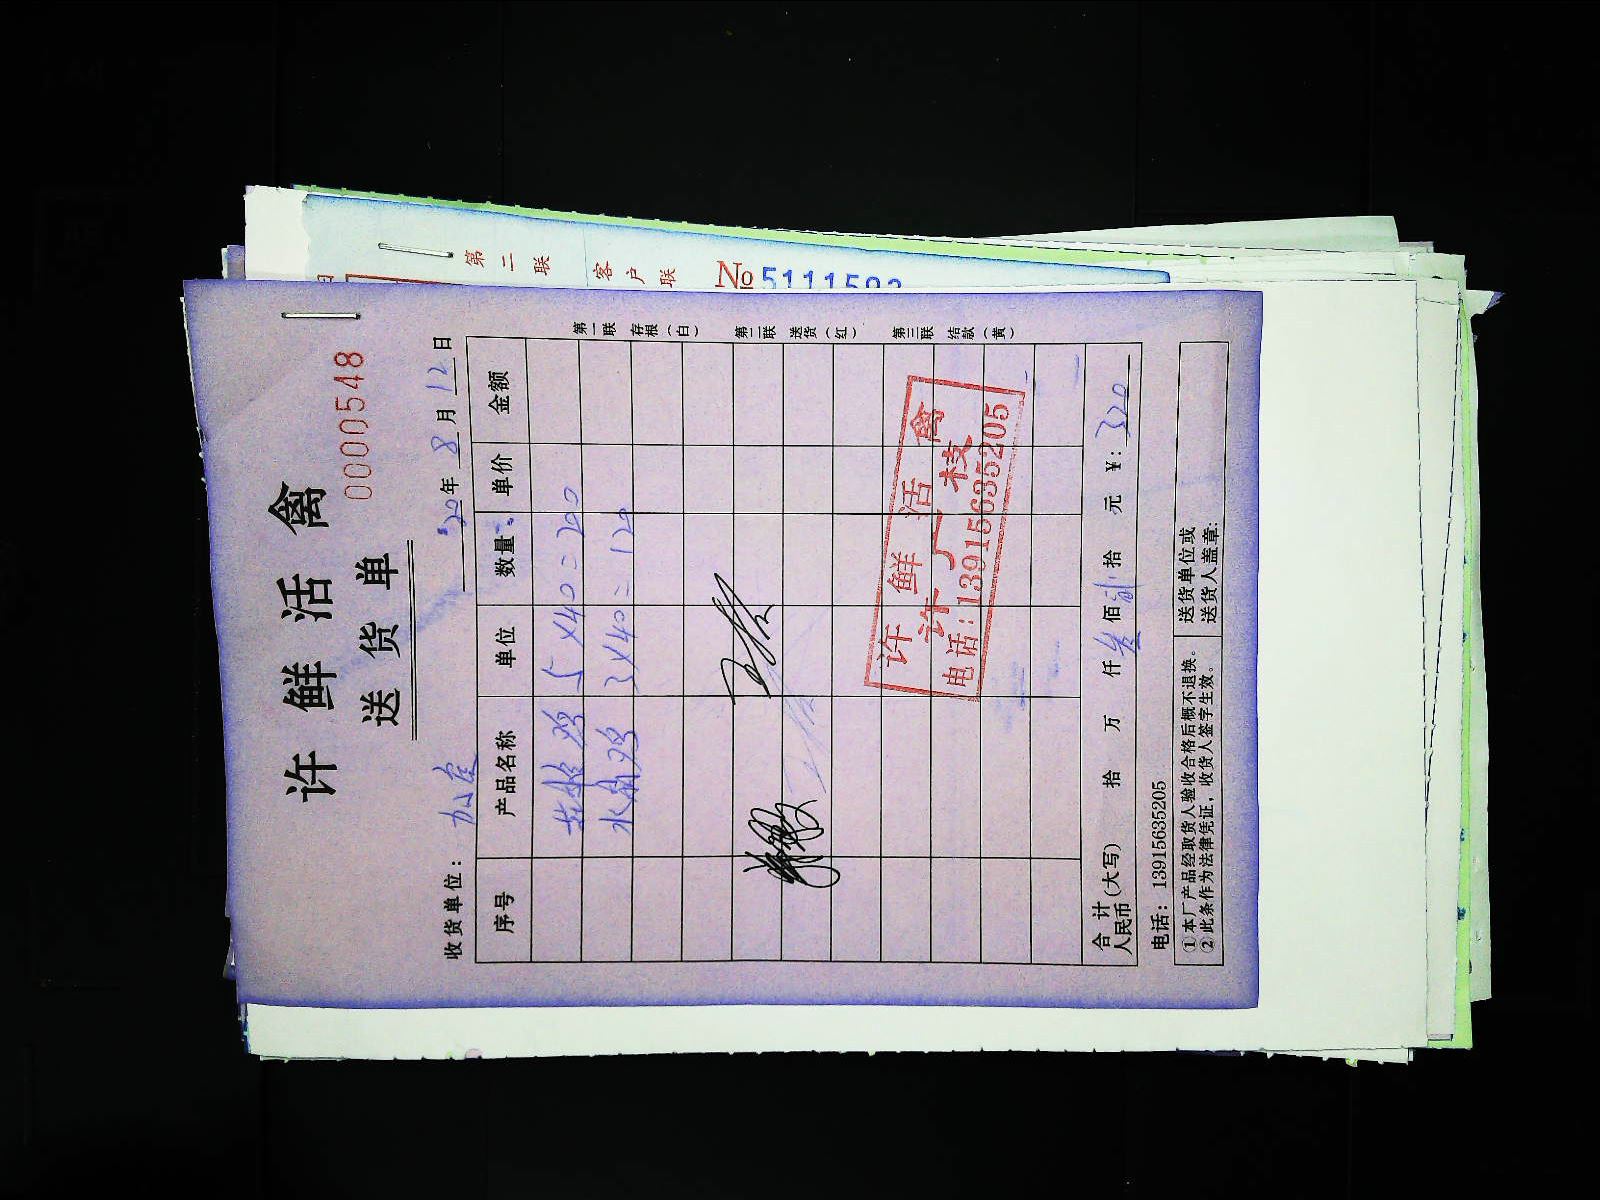 第二联 客户联 №5111592
许鲜活禽
送货单
0000548
收货单位:
20年8月12日
序号 产品名称 单位 数量 单价 金额
鸡 5×40=200
水 鸡 3×40=120
第一联 存根(白) 第二联 送货(红) 第三联 结款(黄)
许鲜活禽
许厂枝
电话:13915635205
合计 人民币(大写) 拾 万 仟 叁佰 贰拾 元 ¥:320
电话:13915635205
①本厂产品经取货人验收合格后概不退换。
②此条作为法律凭证,收货人签字生效。
送货单位或
送货人盖章: